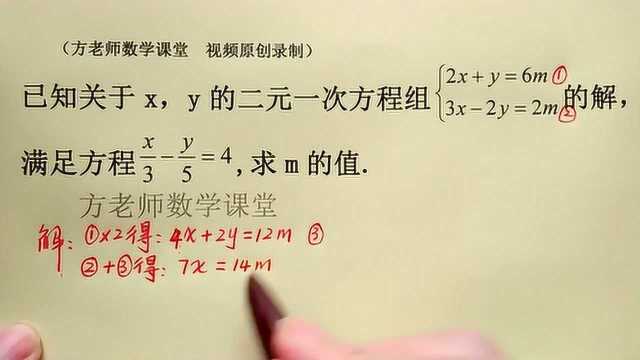 （方老师数学课堂　视频原创录制）
已知关于 x，y 的二元一次方程组{2x+y=6m ① 3x-2y=2m ②的解，
满足方程x/3-y/5=4,求 m 的值.
方老师数学课堂
解：①×2得：4x+2y=12m ③
②+③得：7x=14m